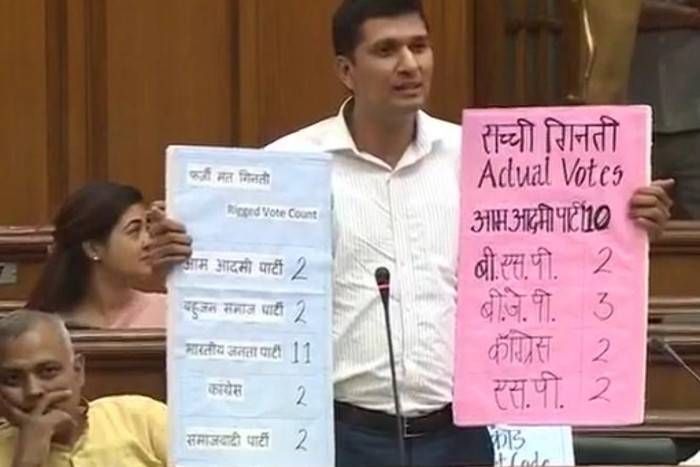 फर्जी मत गिनती
Rigged Vote Count
आम आदमी पार्टी 2
बहुजन समाज पार्टी 2
भारतीय जनता पार्टी 11
कांग्रेस 2
समाजवादी पार्टी 2
सच्ची गिनती
Actual Votes
आम आदमी पार्टी 10
बी.एस.पी. 2
बी.जे.पी. 3
कॉंग्रेस 2
एस.पी. 2
कोड
Code